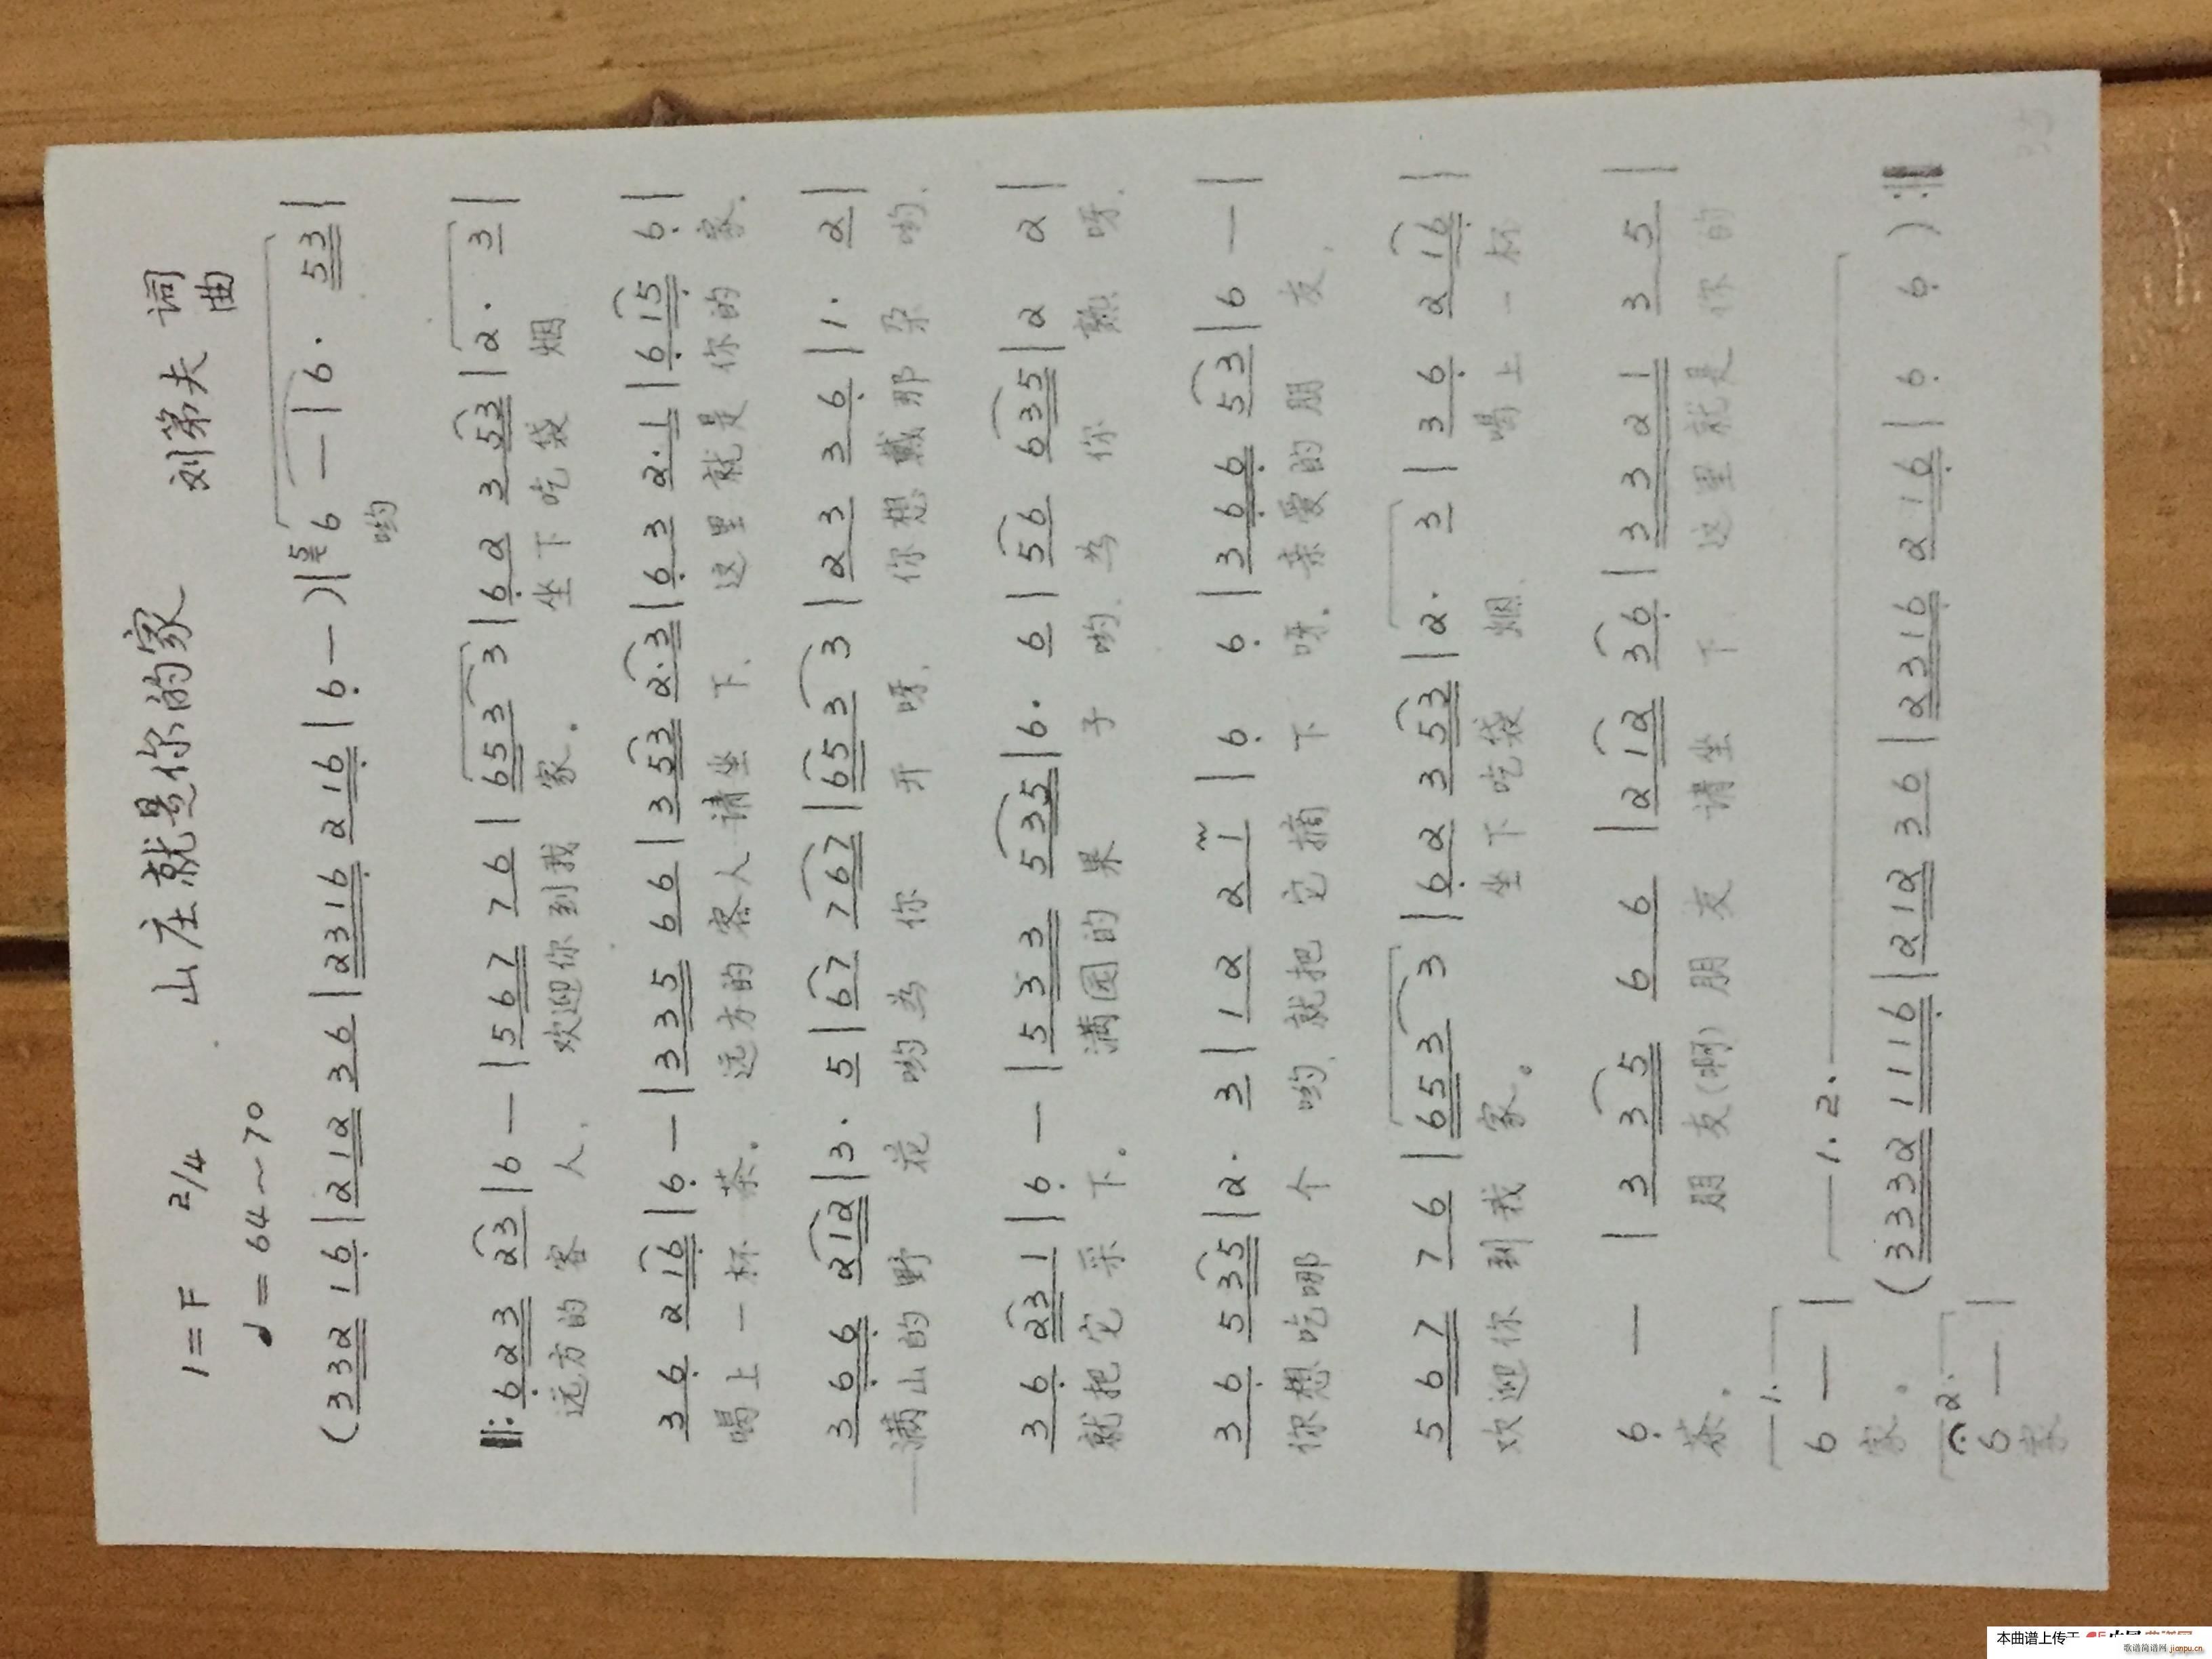 山庄就是你的家
1=F 2/4 刘第夫 词曲
♩=64～70
(332 16 | 212 36 | 2316 216 | 6 — )| 6 — | 6· 53 |
哟
‖: 623 23 | 6 — | 567 76 | 653 3 | 62 353 | 2· 3 |
远方的客人, 欢迎你到我家。 坐下吃袋烟
36 216 | 6 — | 335 66 | 353 2·3 | 63 2·1 | 615 6 |
喝上一杯茶。 远方的客人请坐下, 这里就是你的家.
366 212 | 3· 5 | 67 767 | 653 3 | 23 36 | 1· 2 |
满山的野花哟为你开呀, 你想戴那朵哟.
36 231 | 6 — | 533 535 | 6· 6 | 56 635 | 2 2 |
就把它采下。 满园的果子哟. 为你熟呀.
36 535 | 2· 3 | 12 21 | 6 6 | 366 53 | 6 — |
你想吃哪个哟, 就把它摘下呀. 亲爱的朋友,
567 76 | 653 3 | 62 353 | 2· 3 | 36 216 |
欢迎你到我家。 坐下吃袋烟, 喝上一杯
6 — | 3 35 66 | 212 36 | 3321 35 |
茶。 朋友(啊)朋友请坐下 这里就是你的
1. 1.2.
6 — | (3332 1116 | 212 36 | 2316 216 | 6 6 ) :‖
家。
2.
6 — |
家
本曲谱上传于
歌谱简谱网 jianpu.cn